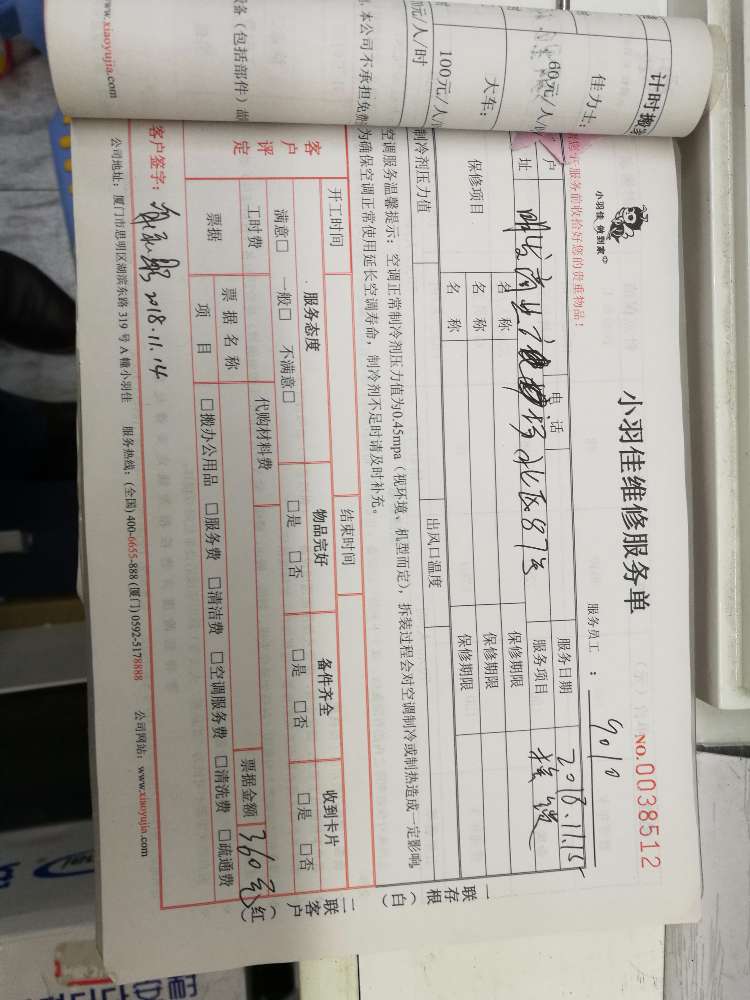 小羽佳维修服务单
小羽佳 倍到家
服务员工： 9010
NO.0038512
服务前收拾好您的贵重物品！
户
电话
服务日期
2018.11.15
址
北区87号
服务项目
保修项目
名称
保修期限
名称
保修期限
名称
保修期限
制冷剂压力值
出风口温度
空调服务温馨提示：空调正常制冷剂压力值为0.45mpa（视环境、机型而定），拆装过程会对空调制冷或制热造成一定影响，
为确保空调正常使用延长空调寿命，制冷剂不足时请及时补充。
开工时间
结束时间
客户评定
服务态度
物品完好
备件齐全
收到卡片
满意□ 一般□ 不满意□
□是 □否
□是 □否
□是 □否
工时费
代购材料费
票据金额
360元
票据
票据名称
项目
□搬办公用品 □服务费 □清洁费 □空调服务费 □清洗费 □疏通费
客户签字：
2018.11.14
公司地址：厦门市思明区湖滨东路 319 号 A 幢小羽佳 服务热线：(全国) 400-6655-888 (厦门) 0592-5178888 公司网站：www.xiaoyujia.com
一联存根（白）
二联客户（红）
计时搬
佳力士：
60元/人/
大车：
100元/人/
元/人/时
本公司不承担免
设备（包括部件）故
www.xiaoyujia.com